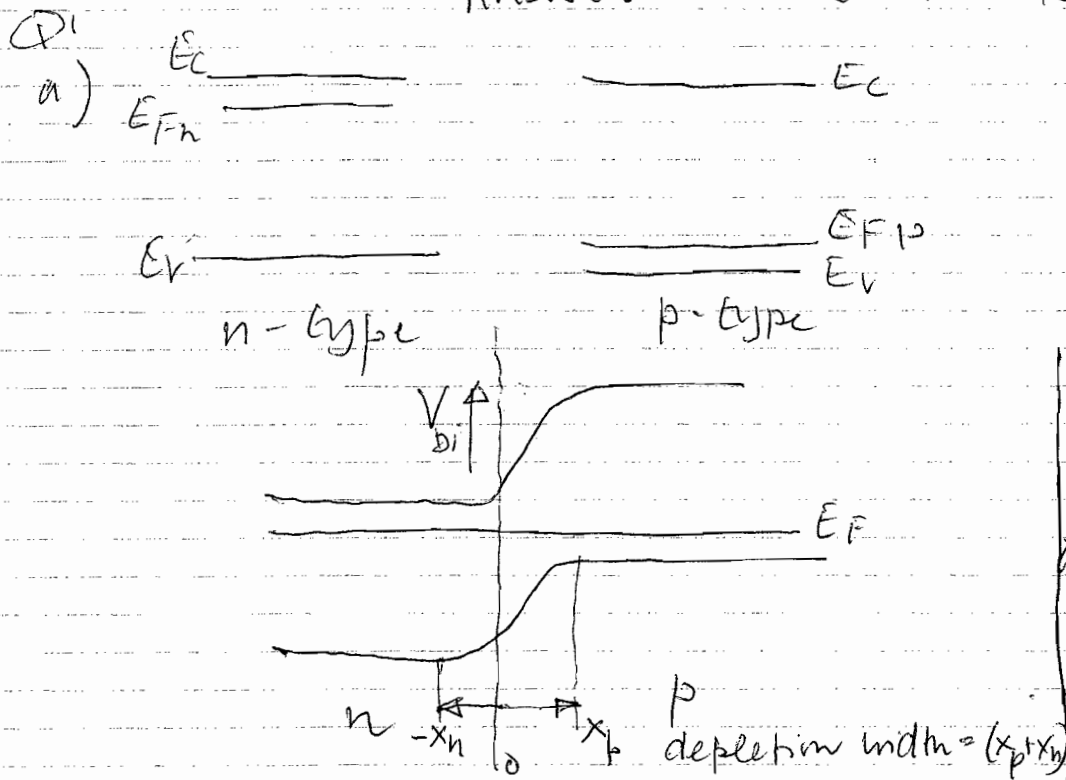 Q1
a) Ec Ec
EFn
EFp
Ev Ev
n-type p-type
Vbi
EF
n -xn 0 xp p
depletion width = (xp+xn)